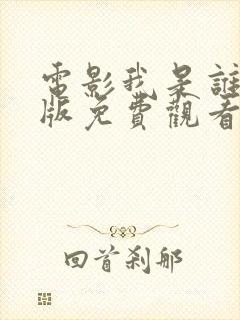 電影我是誰
版免費觀看
回首剎那